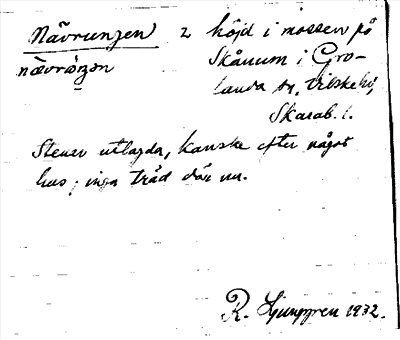 Nävrungen 2 höjd i mossen på
nævröŋən Skånum i Gro-
landa sn, Vilske hd,
Skarab. l.
Stenar utlagda, kanske efter något
hus; inga träd där nu.
R. Ljunggren 1932.